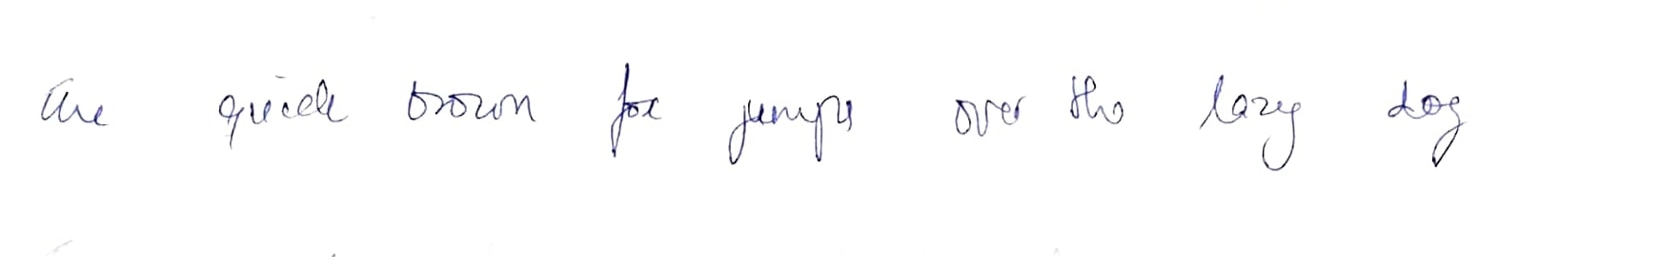 the quick brown fox jumps over the lazy dog